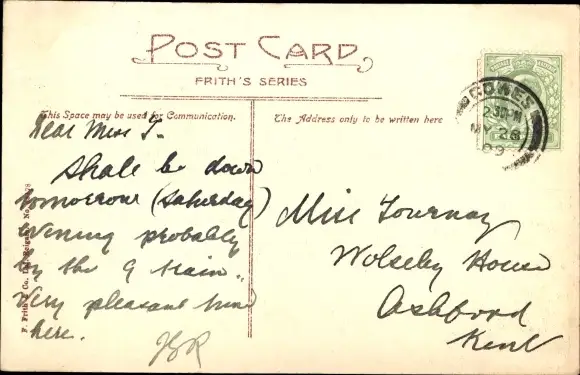 POST CARD
FRITH'S SERIES
This Space may be used for Communication.
The Address only to be written here
Dear Miss T-
Shall be down
tomorrow (Saturday)
evening probably
by the 9 train.
Very pleasant wind
here.
Miss Tournay
Wolseley House
Ashford
Kent
COWES
MY 28
09
F. Frith & Co. Ltd. Reigate. No.